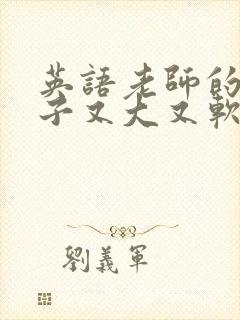 英語老師的
子又大又軟
劉義軍